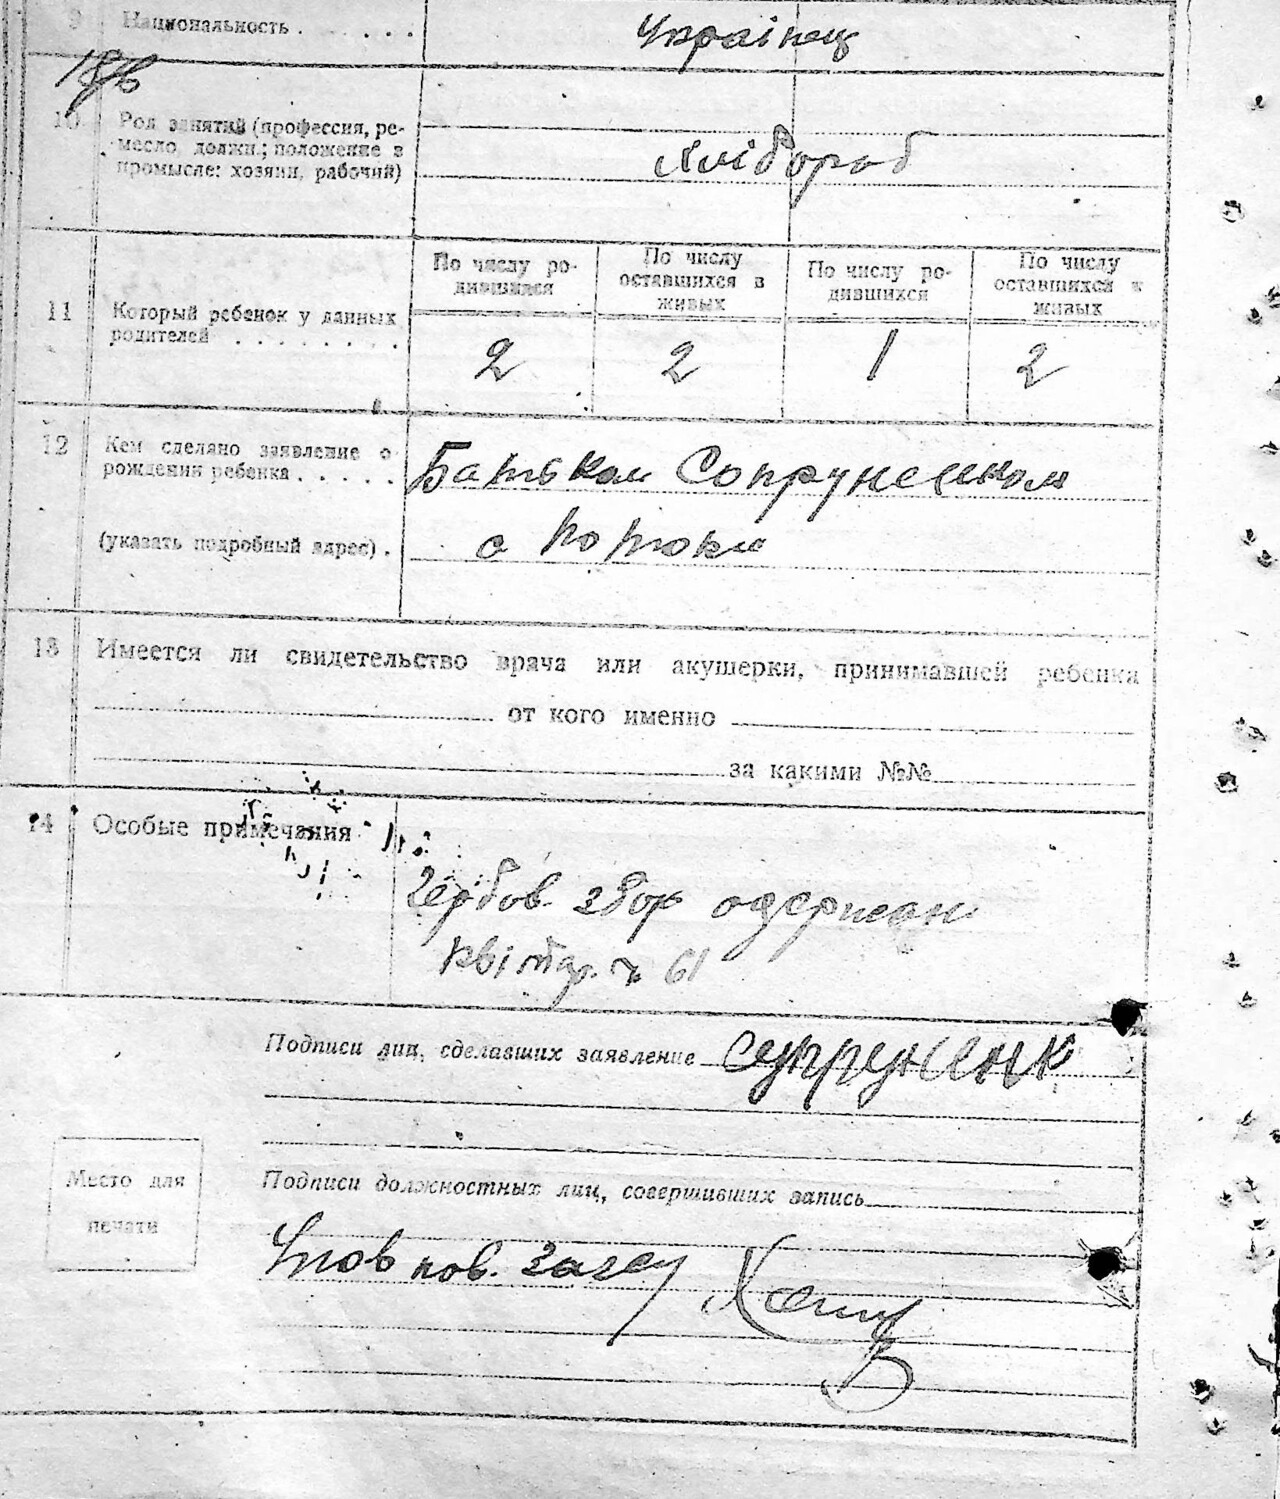 9 Национальность . . . . . Українец
10 Род занятий (профессия, ре-
месло должн.; положение в
промысле: хозяин, рабочий)
хлібороб
По числу ро-
дившихся
По числу
оставшихся в
живых
По числу ро-
дившихся
По числу
оставшихся в
живых
11 Который ребенок у данных
родителей . . . . . . . .
2 2 1 2
12 Кем сделано заявление о
рождении ребенка . . . . . Батьком Сопруненком
(указать подробный адрес) . с Потоки
13 Имеется ли свидетельство врача или акушерки, принимавшей ребенка
от кого именно
за какими №№
14 Особые примечания
Гербов. збор одержан
квітар. № 61
Подписи лиц, сделавших заявление Супруненк
Место для
печати
Подписи должностных лиц, совершивших запись
загсу